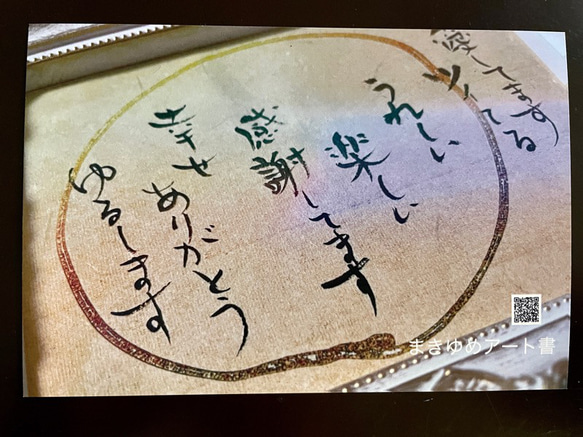 愛してます
ツイてる
うれしい
楽しい
感謝してます
幸せ
ありがとう
ゆるします
まきゆめアート書